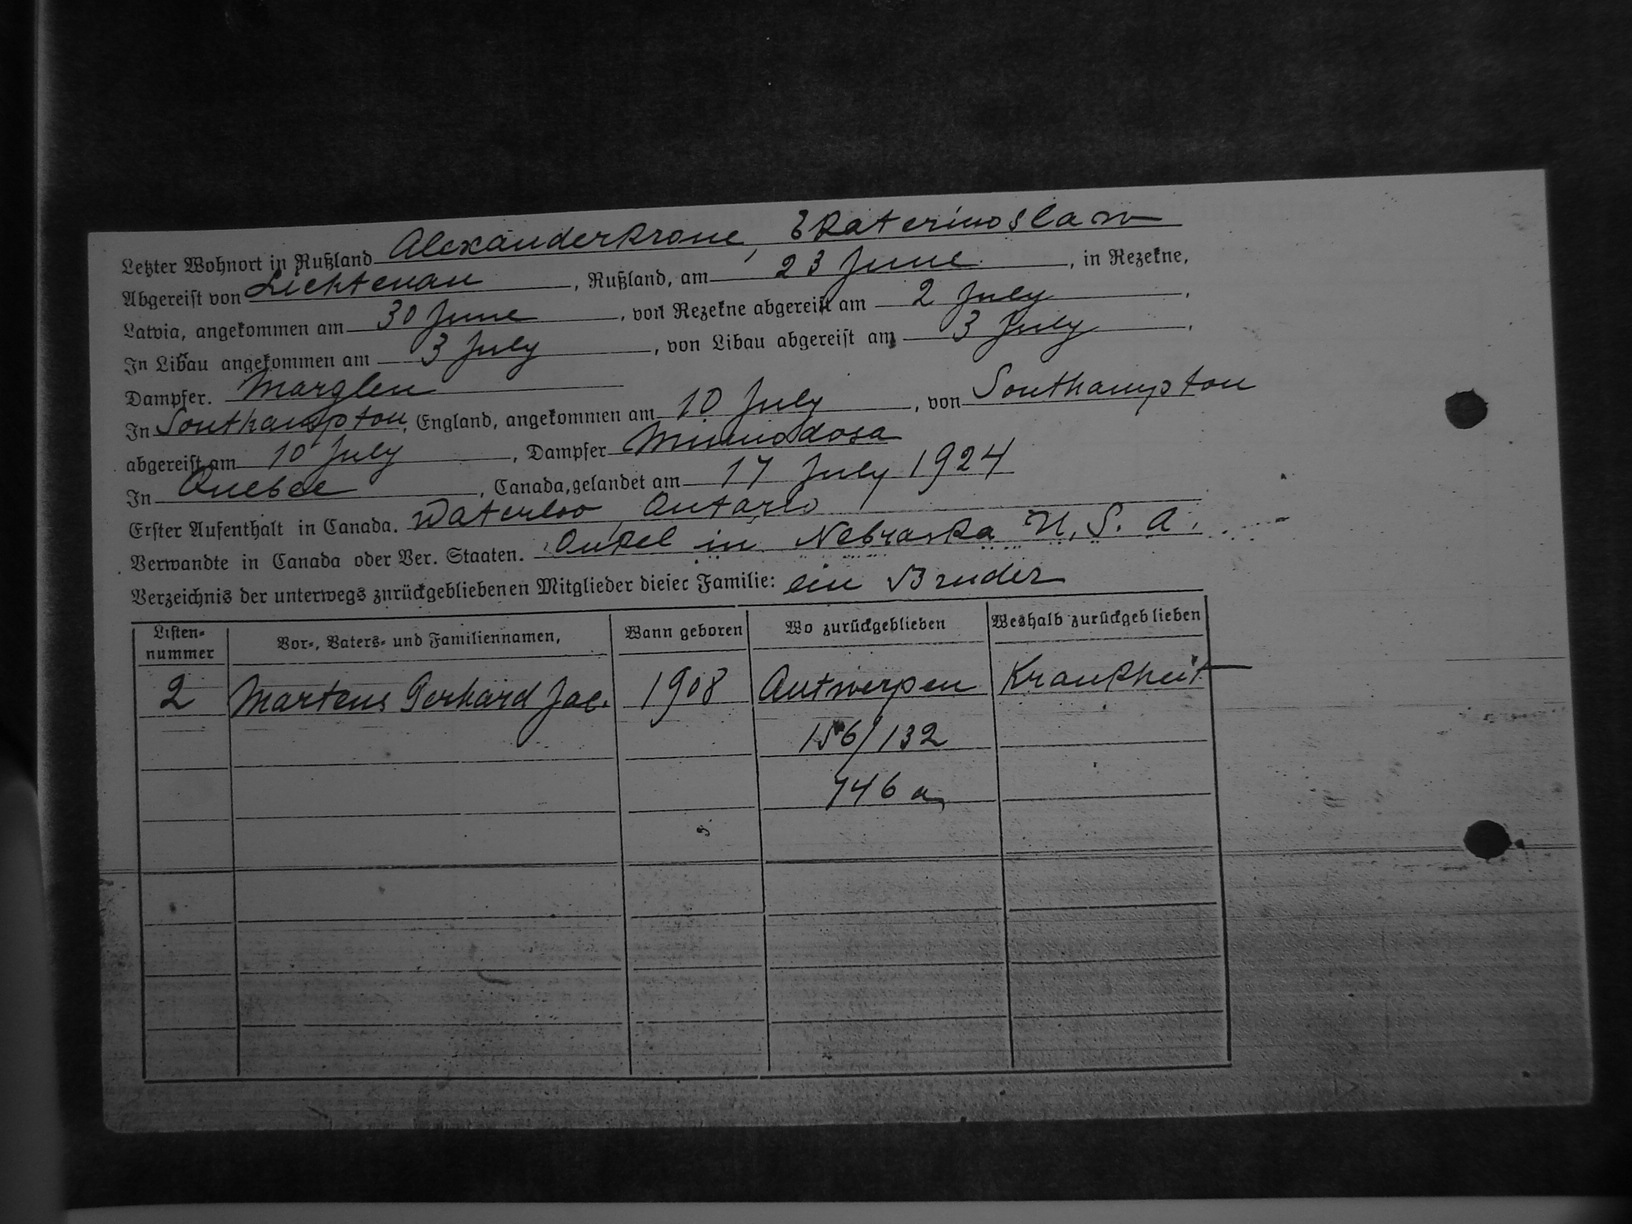 Letzter Wohnort in Rußland Alexanderkrone, Ekaterinoslaw
Abgereist von Lichtenau, Rußland, am 23 June, in Rezekne,
Latvia, angekommen am 30 June, von Rezekne abgereist am 2 July.
In Libau angekommen am 3 July, von Libau abgereist am 3 July.
Dampfer. Marglen
In Southampton, England, angekommen am 10 July, von Southampton
abgereist am 10 July, Dampfer Minnodosa
In Quebec, Canada, gelandet am 17 July 1924
Erster Aufenthalt in Canada. Waterloo, Ontario
Verwandte in Canada oder Ver. Staaten. Onkel in Nebraska U. S. A.
Verzeichnis der unterwegs zurückgebliebenen Mitglieder dieser Familie: ein Bruder
Listen-nummer Vor-, Vaters- und Familiennamen, Wann geboren Wo zurückgeblieben Weshalb zurückgeblieben
2 Martens Gerhard Jac. 1908 Antwerpen Krankheit
156/132
746 a